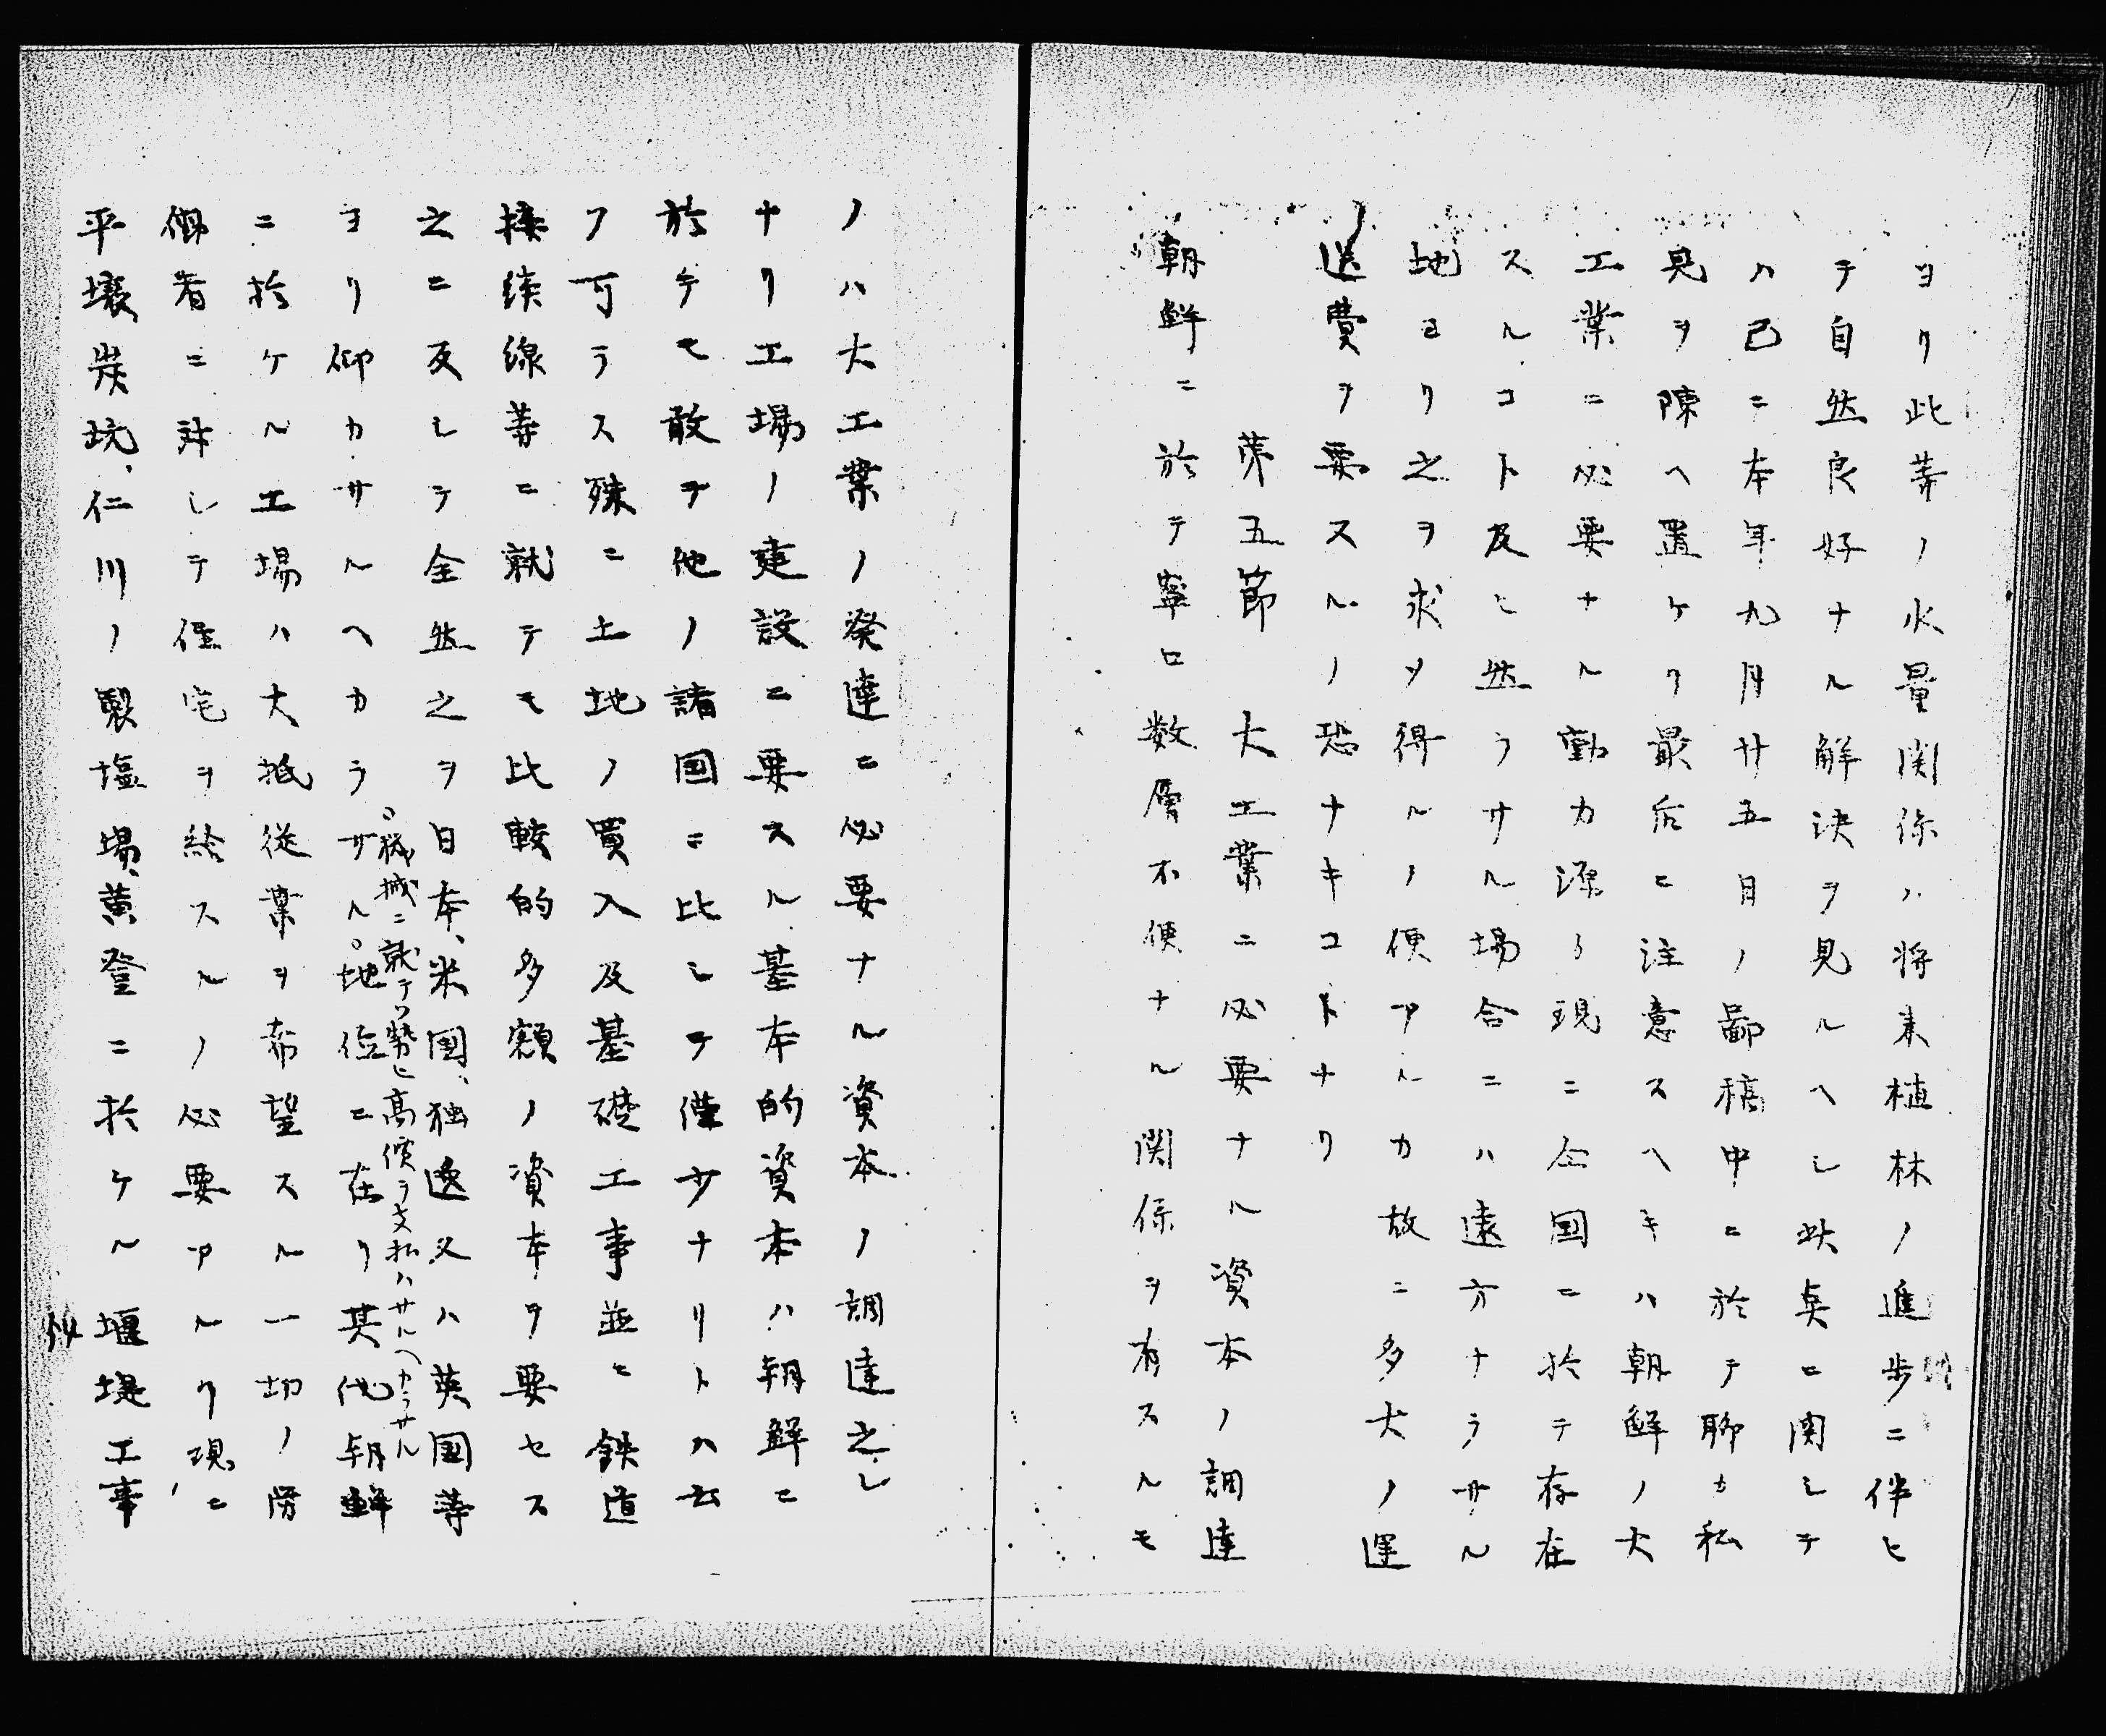 ヨリ此等ノ水量関係ハ将来植林ノ進歩ニ伴ヒ
テ自然良好ナル解決ヲ見ルヘシ此点ニ関シテ
ハ已ニ本年九月廿五日ノ鄙稿中ニ於テ聊カ私
見ヲ陳ヘ置ケリ最后ニ注意スヘキハ朝鮮ノ大
工業ニ必要ナル動力源ヲ現ニ仝国ニ於テ存在
スルコト及ヒ然ラサル場合ニハ遠方ナラサル
地ヨリ之ヲ求メ得ルノ便アルカ故ニ多大ノ運
送費ヲ要スルノ恐ナキコトナリ
第五節　大工業ニ必要ナル資本ノ調達
朝鮮ニ於テ寧ロ数層不便ナル関係ヲ有スルモ
ノハ大工業ノ発達ニ必要ナル資本ノ調達之レ
ナリ工場ノ建設ニ要スル基本的資本ハ朝鮮ニ
於テモ敢テ他ノ諸国ニ比シテ僅少ナリトハ云
フ可ラス殊ニ土地ノ買入及基礎工事並ニ鉄道
接続線等ニ就テモ比較的多額ノ資本ヲ要セス
之ニ反シテ全然之ヲ日本、米国、独逸又ハ英国等
ヨリ仰カサルヘカラサル。地位ニ在リ其他朝鮮
。機械ニ就テハ勢ヒ高価ヲ支払ハサルヘカラサル
ニ於ケル工場ハ大抵従業ヲ希望スル一切ノ労
働者ニ対シテ住宅ヲ給スルノ必要アルリ現ニ
平壌炭坑、仁川ノ製塩場、黄登ニ於ケル堰堤工事